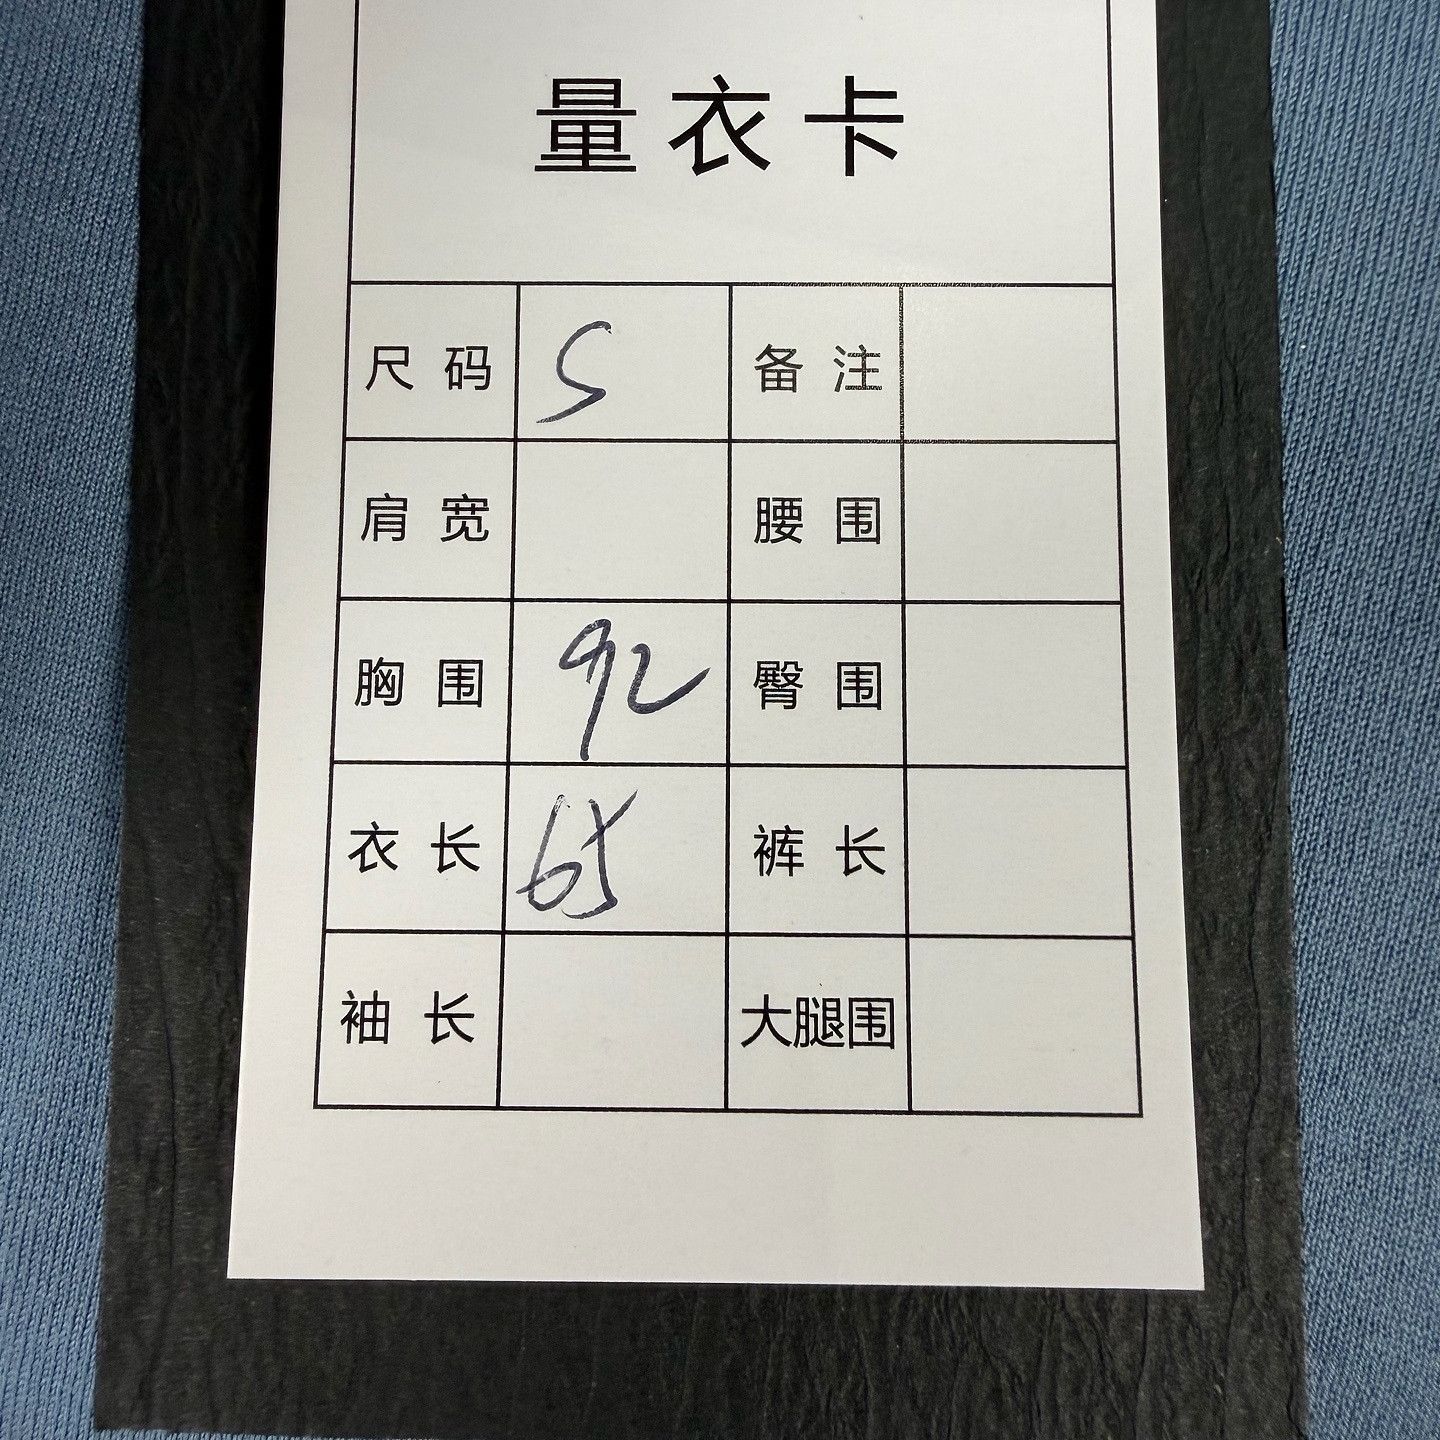 量衣卡
尺码 S 备注
肩宽 腰围
胸围 92 臀围
衣长 65 裤长
袖长 大腿围